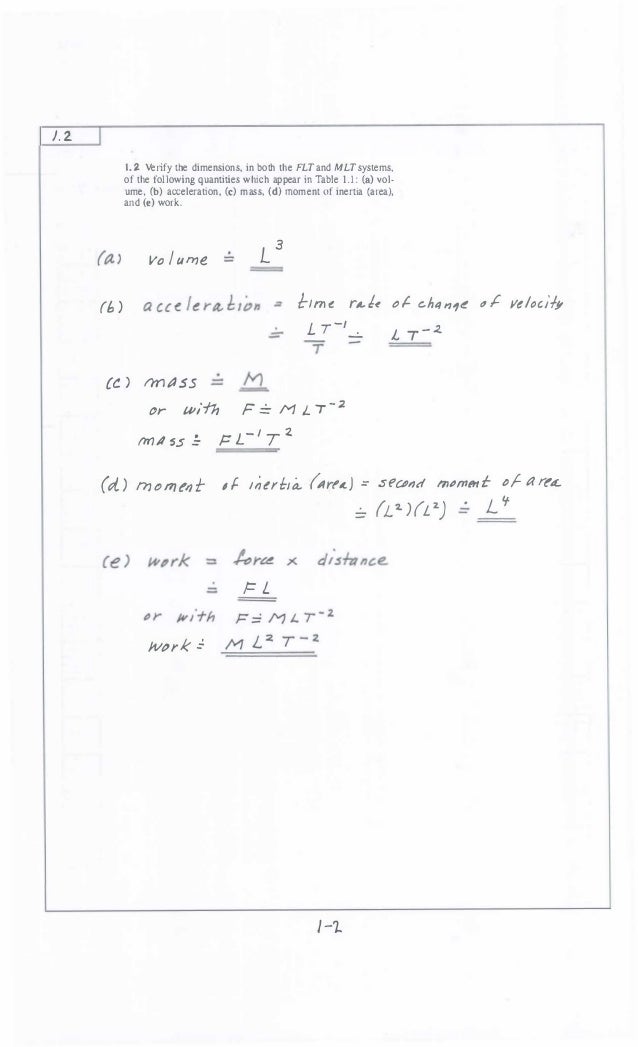 1.2
1.2 Verify the dimensions, in both the FLT and MLT systems,
of the following quantities which appear in Table 1.1: (a) vol-
ume, (b) acceleration, (c) mass, (d) moment of inertia (area),
and (e) work.
(a) volume ≐ L³
(b) acceleration = time rate of change of velocity
≐ LT⁻¹/T ≐ LT⁻²
(c) mass ≐ M
or with F ≐ MLT⁻²
mass ≐ FL⁻¹T²
(d) moment of inertia (area) = second moment of area
≐ (L²)(L²) ≐ L⁴
(e) work = force x distance
≐ FL
or with F ≐ MLT⁻²
work ≐ ML²T⁻²
1-2